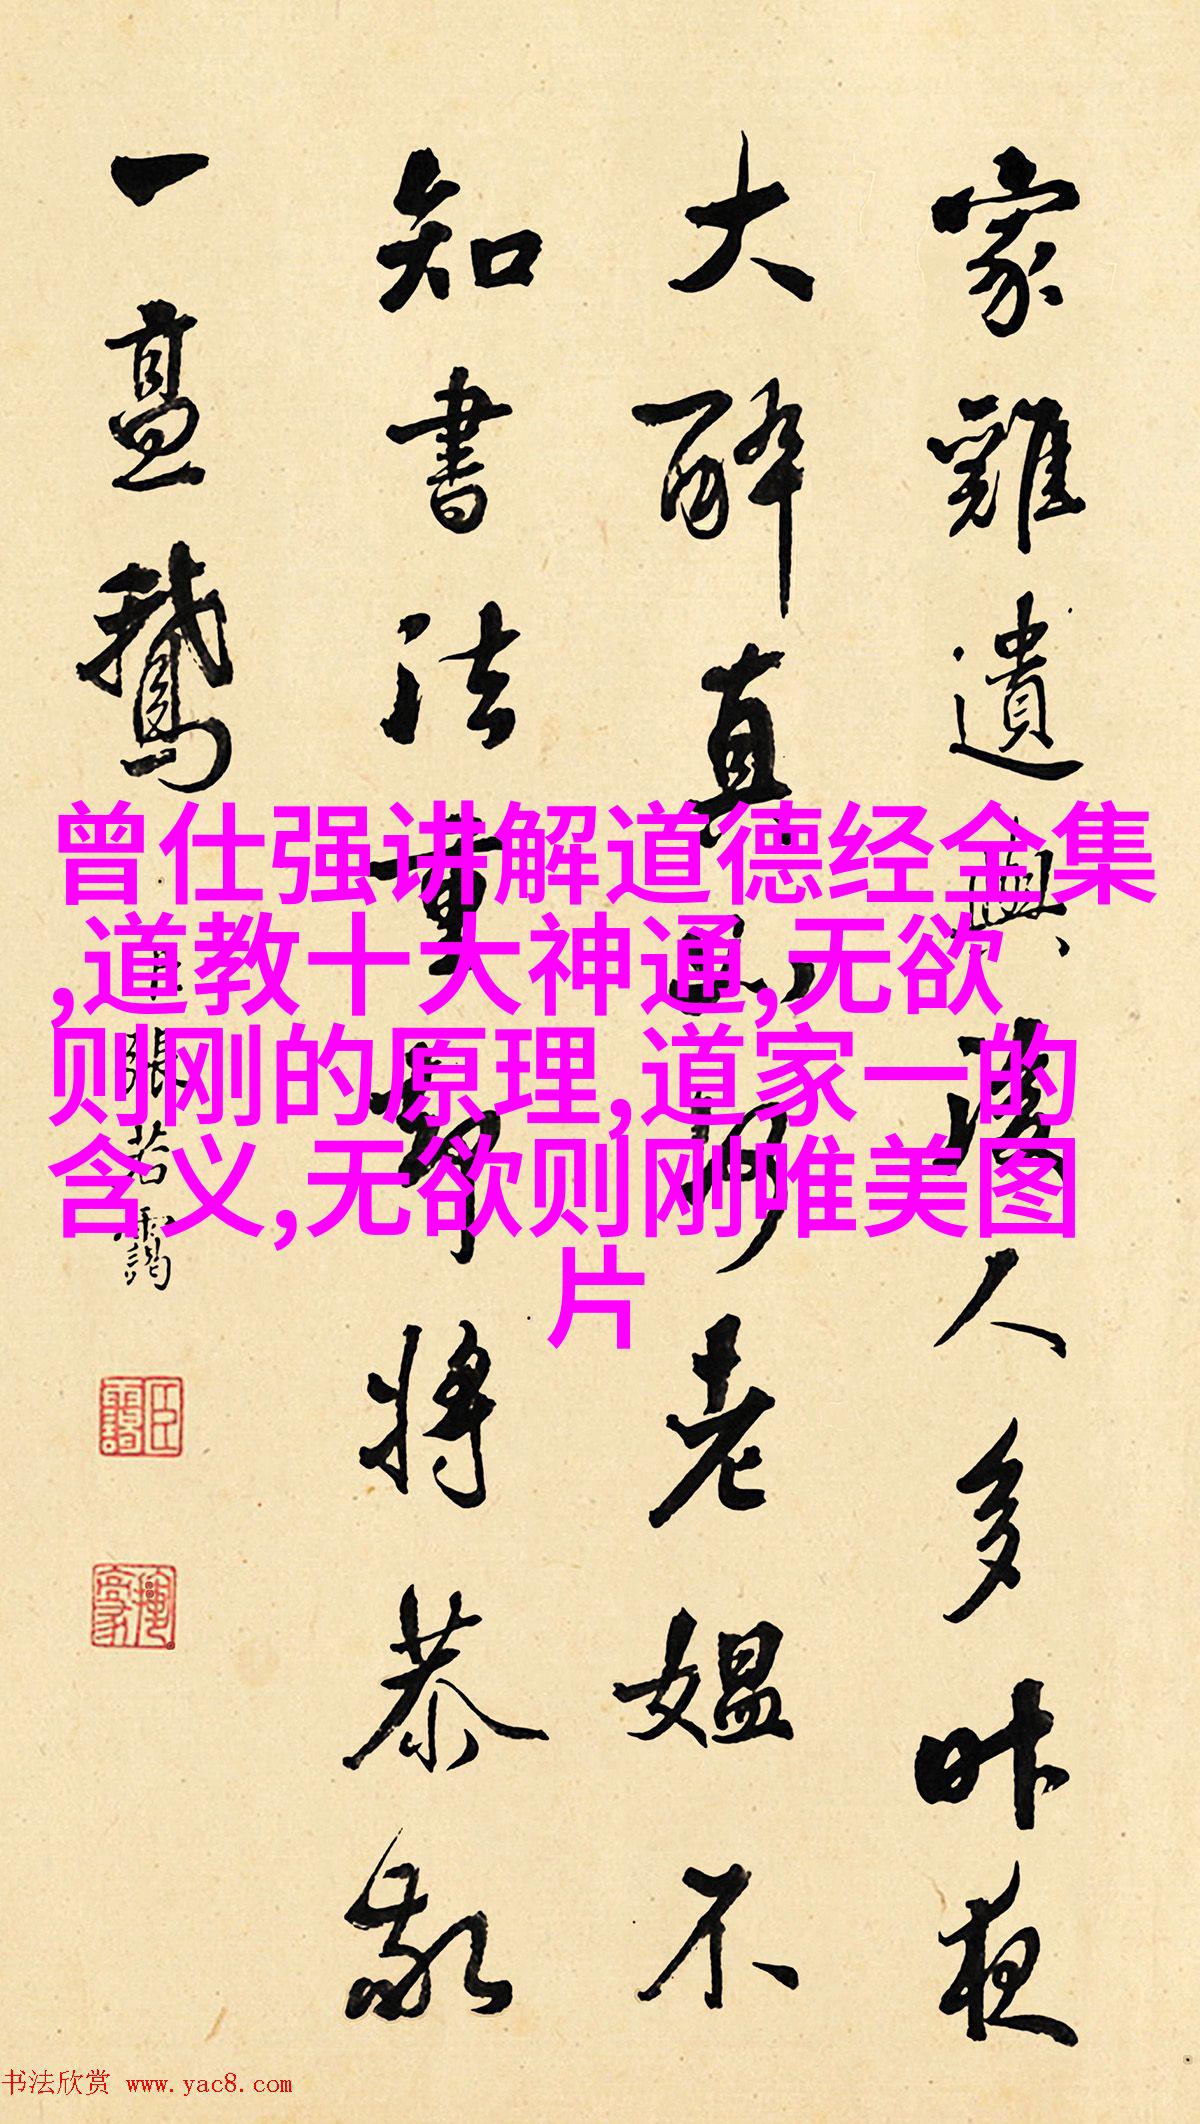 家雞遺人多昨夜
大醉真老媼不
知書法重將恭敬
一鵝
張若
曾仕强讲解道德经全集
,道教十大神通,无欲
则刚的原理,道家一的
含义,无欲则刚唯美图
片
书法欣赏 www.yac8.com